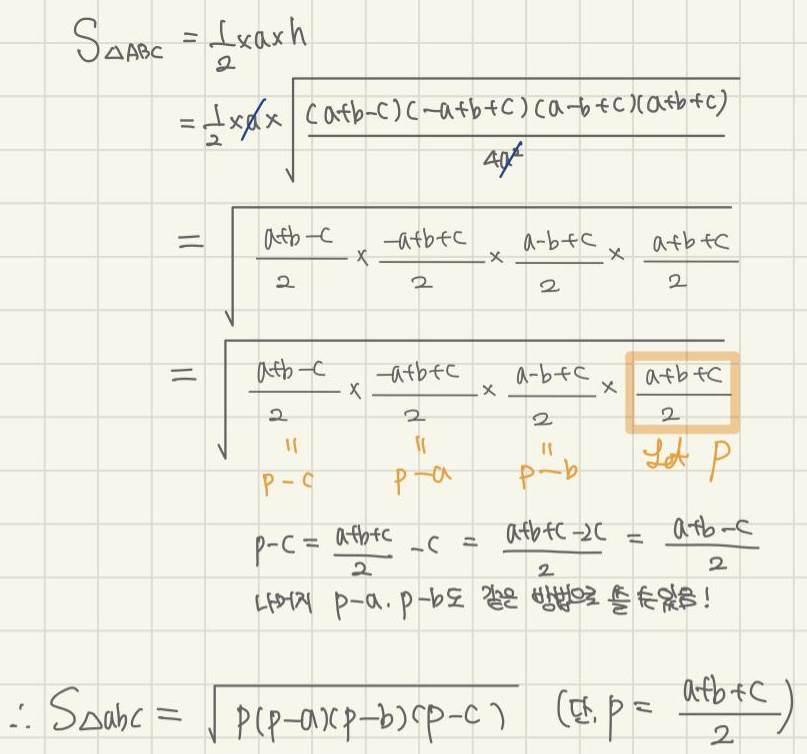 S△ABC = 1/2 × a × h
= 1/2 × a × √((a+b-c)(-a+b+c)(a-b+c)(a+b+c) / 4a²)
= √((a+b-c)/2 × (-a+b+c)/2 × (a-b+c)/2 × (a+b+c)/2)
= √((a+b-c)/2 × (-a+b+c)/2 × (a-b+c)/2 × (a+b+c)/2)
= = =
p-c p-a p-b Let p
p-c = (a+b+c)/2 - c = (a+b+c-2c)/2 = (a+b-c)/2
나머지 p-a. p-b도 같은 방법으로 쓸 수 있음!
∴ S△abc = √(p(p-a)(p-b)(p-c)) (단, p = (a+b+c)/2)